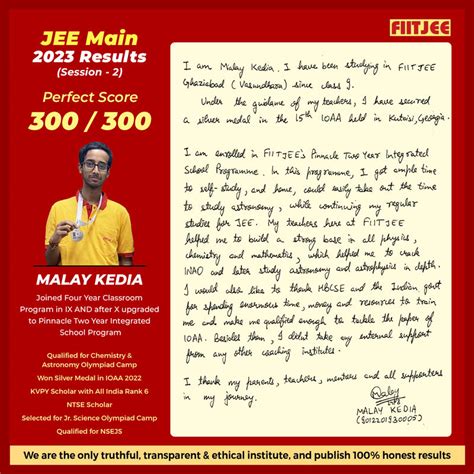 JEE Main
2023 Results
(Session - 2)
Perfect Score
300 / 300
MALAY KEDIA
Joined Four Year Classroom
Program in IX AND after X upgraded
to Pinnacle Two Year Integrated
School Program
Qualified for Chemistry &
Astronomy Olympiad Camp
Won Silver Medal in IOAA 2022
KVPY Scholar with All India Rank 6
NTSE Scholar
Selected for Jr. Science Olympiad Camp
Qualified for NSEJS
FIITJEE
I am Malay Kedia. I have been studying in FIITJEE
Ghaziabad (Vasundhara) since class 9.
Under the guidance of my teachers, I have secured
a silver medal in the 15th IOAA held in Kutaisi, Georgia.
I am enrolled in FIITJEE's Pinnacle Two Year Integrated
School Programme. In this programme, I got ample time
to self-study, and hence, could easily take out the time
to study astronomy, while continuing my regular
studies for JEE. My teachers here at FIITJEE
helped me to build a strong base in all physics,
chemistry and mathematics, which helped me to crack
INAO and later study astronomy and astrophysics in depth.
I would also like to thank HBCSE and the Indian govt
for spending enormous time, money and resources to train
me and make me qualified enough to tackle the paper of
IOAA. Besides them, I didnt take any external support
from any other coaching institutes.
I thank my parents, teachers, mentors and all supporters
in my journey.
Malay
MALAY KEDIA
We are the only truthful, transparent & ethical institute, and publish 100% honest results